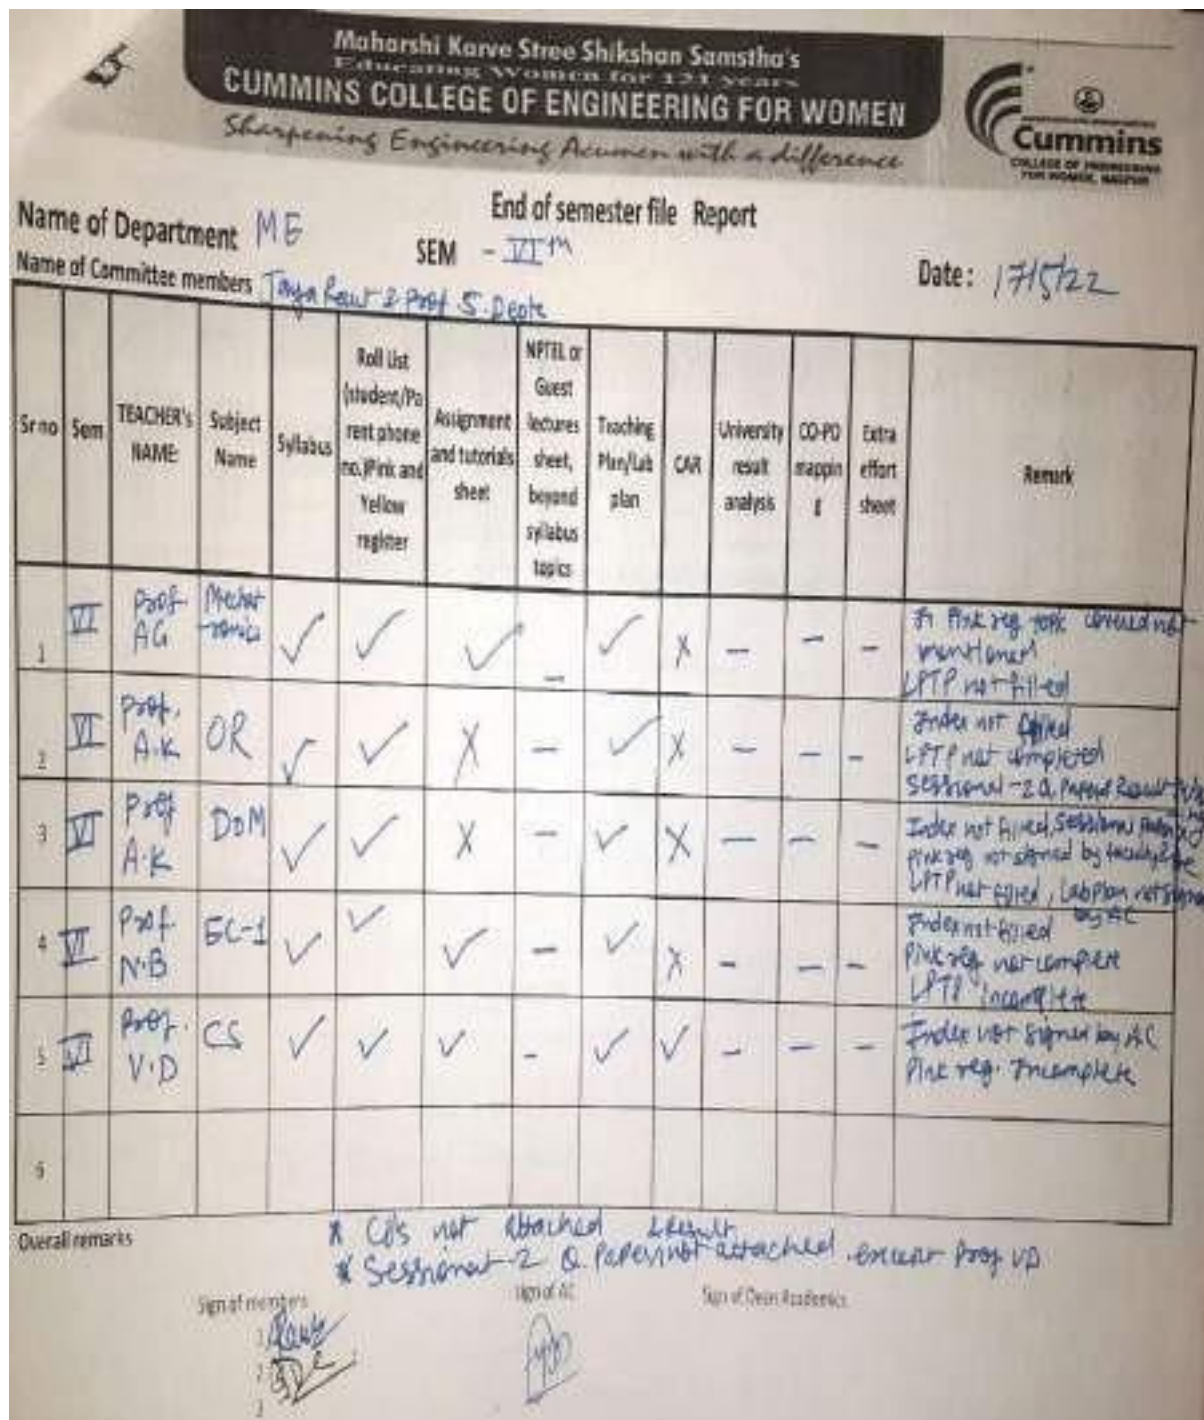 Maharshi Karve Stree Shikshan Samstha's
Educating Women for 121 years
CUMMINS COLLEGE OF ENGINEERING FOR WOMEN
Sharpening Engineering Acumen with a difference
Cummins
COLLEGE OF ENGINEERING
FOR WOMEN, NAGPUR
End of semester file Report
Name of Department ME
SEM - VIth
Date: 17/5/22
Name of Committee members Raut & Prof S.
Sr no Sem TEACHER's NAME: Subject Name Syllabus Roll List (student/Parent phone no.)Pink and Yellow register Assignment and tutorials sheet NPTEL or Guest lectures sheet, beyond syllabus topics Teaching Plan/Lab plan CAR University result analysis CO-PO mapping Extra effort sheet Remark
1 VI Prof AG Mechatronics ✓ ✓ ✓ - ✓ X - - - In Pink reg topic covered not
mentioned
LPTP not filled
2 VI Prof. A.K OR ✓ ✓ X - ✓ X - - - Index not filled
LPTP not completed
Sessional-2 Q. Paper Result
3 VI Prof A.K DOM ✓ ✓ X - ✓ X - - - Index not filled, Sessional
Pink reg not signed by faculty
LPTP not filled, Lab Plan not signed
by AC
4 VI Prof. N.B EC-1 ✓ ✓ ✓ - ✓ X - - - Index not filled
Pink reg. not complete
LPTP incomplete
5 VI Prof. V.D CS ✓ ✓ ✓ - ✓ ✓ - - - Index not signed by AC
Pink reg. Incomplete
6
Overall remarks
* CO's not attached
* Sessional-2 Q. Papers & result not attached except Prof VD
Sign of members
Sign of AC
Sign of Dean Academics
1
2
3